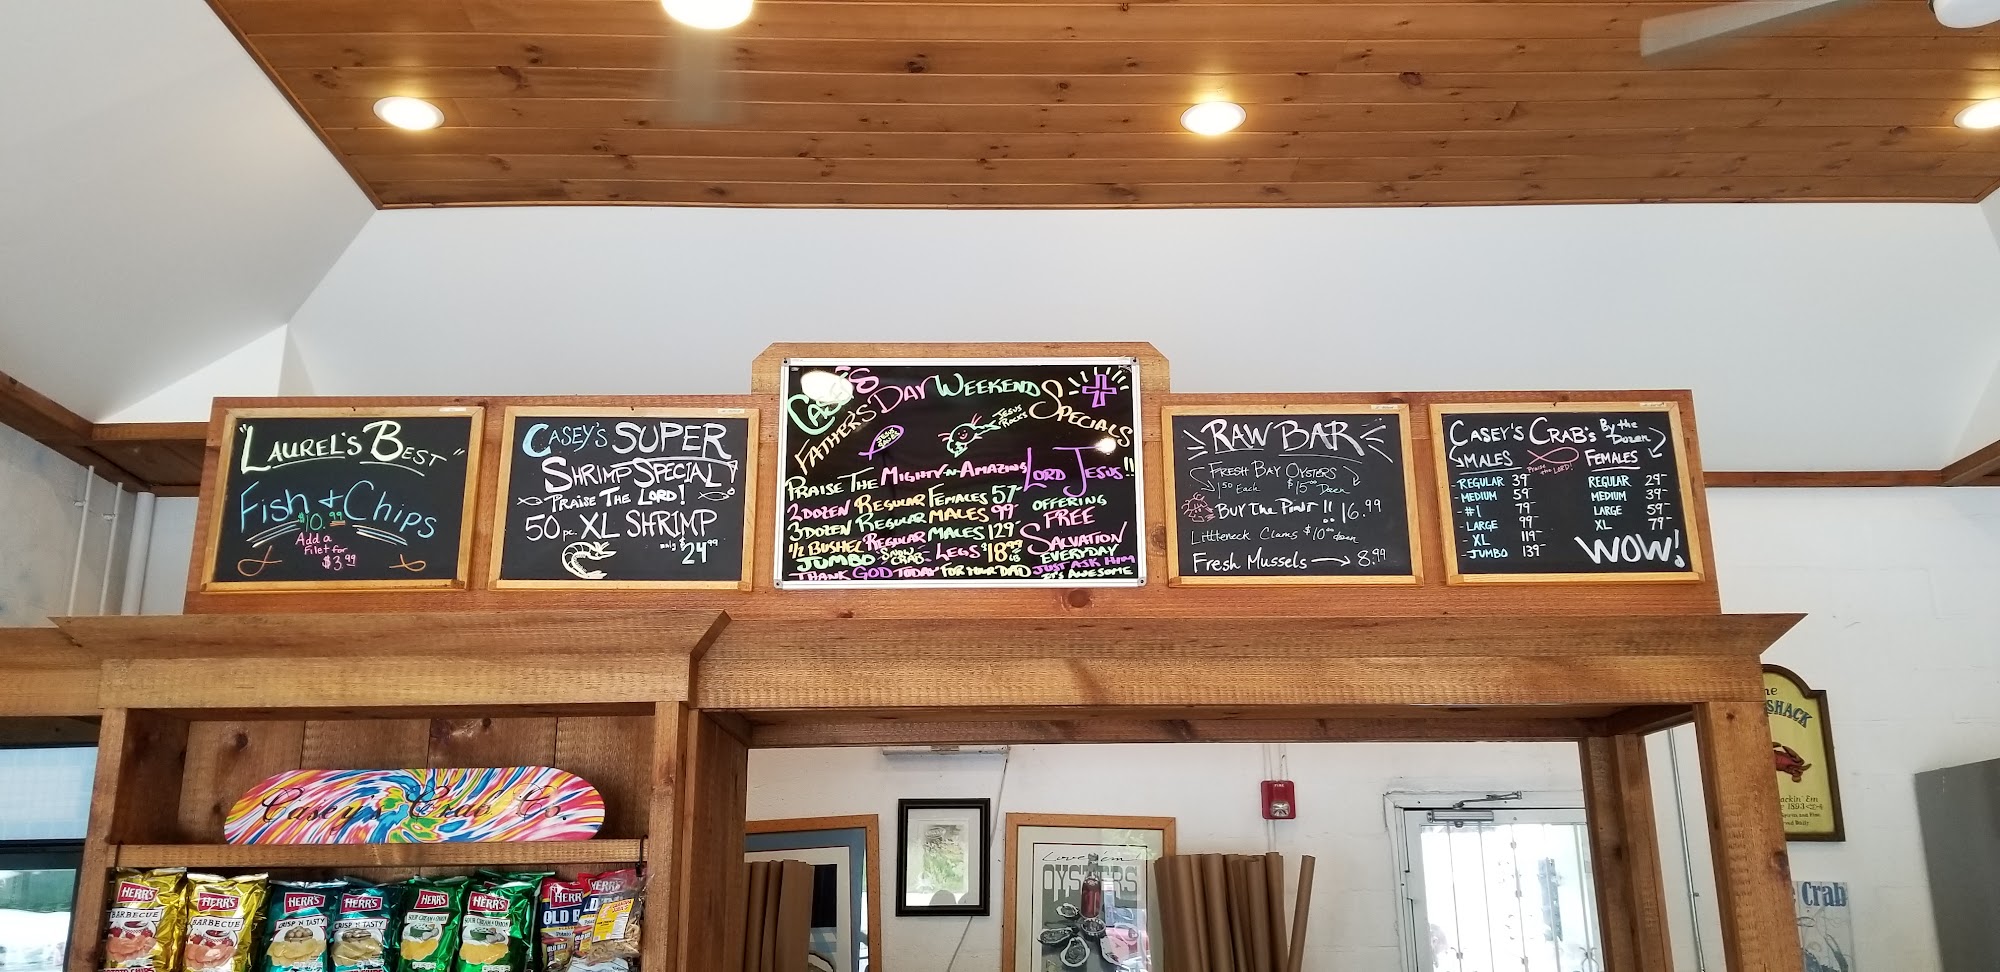 "LAUREL'S BEST"
Fish & Chips
$10.99
Add a
Filet for
$3.99
CASEY'S SUPER
SHRIMP SPECIAL!
PRAISE THE LORD!
50 pc. XL SHRIMP
only $24.99
CASEY'S
FATHER'S DAY WEEKEND SPECIALS
JESUS SAVES
JESUS ROCKS
PRAISE THE MIGHTY-N-AMAZING LORD JESUS!!
2 DOZEN REGULAR FEMALES 57-
3 DOZEN REGULAR MALES 99-
1/2 BUSHEL REGULAR MALES 129-
JUMBO SNOW CRAB - LEGS $18.99 LB
THANK GOD TODAY FOR YOUR DAD
OFFERING
FREE
SALVATION
EVERYDAY
JUST ASK HIM
IT'S AWESOME
RAW BAR
FRESH BAY OYSTERS
1.50 Each $15.00 Dozen
BUY THE PINT!! 16.99
Littleneck Clams $10.00 dozen
Fresh Mussels → 8.99
CASEY'S CRAB's By the Dozen
MALES
Praise the LORD!
FEMALES
- REGULAR 39-
- MEDIUM 59-
- #1 79-
- LARGE 99-
- XL 119-
- JUMBO 139-
REGULAR 29-
MEDIUM 39-
LARGE 59-
XL 79-
WOW!
Casey's Crab Co.
HERR'S
BARBECUE
POTATO CHIPS
HERR'S
BARBECUE
HERR'S
CRISP 'N TASTY
HERR'S
CRISP 'N TASTY
HERR'S
SOUR CREAM & ONION
HERR'S
SOUR CREAM & ONION
HERR'S
OLD BAY
HERR'S
Love 'em!
OYSTERS
FIRE
SHACK
1893
Crab